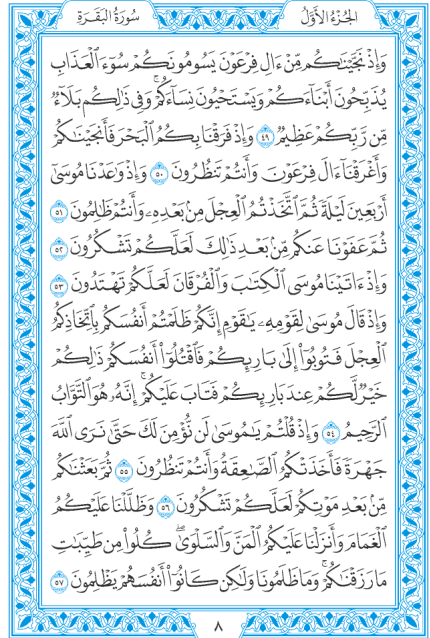 الجُزْءُ الأَوَّلُ
سُورَةُ البَقَرَةِ
وَإِذْ نَجَّيْنَٰكُم مِّنْ ءَالِ فِرْعَوْنَ يَسُومُونَكُمْ سُوٓءَ ٱلْعَذَابِ
يُذَبِّحُونَ أَبْنَآءَكُمْ وَيَسْتَحْيُونَ نِسَآءَكُمْ ۚ وَفِى ذَٰلِكُم بَلَآءٌ
مِّن رَّبِّكُمْ عَظِيمٌ ٤٩ وَإِذْ فَرَقْنَا بِكُمُ ٱلْبَحْرَ فَأَنجَيْنَٰكُمْ
وَأَغْرَقْنَآ ءَالَ فِرْعَوْنَ وَأَنتُمْ تَنظُرُونَ ٥٠ وَإِذْ وَٰعَدْنَا مُوسَىٰٓ
أَرْبَعِينَ لَيْلَةً ثُمَّ ٱتَّخَذْتُمُ ٱلْعِجْلَ مِنۢ بَعْدِهِۦ وَأَنتُمْ ظَٰلِمُونَ ٥١
ثُمَّ عَفَوْنَا عَنكُم مِّنۢ بَعْدِ ذَٰلِكَ لَعَلَّكُمْ تَشْكُرُونَ ٥٢
وَإِذْ ءَاتَيْنَا مُوسَى ٱلْكِتَٰبَ وَٱلْفُرْقَانَ لَعَلَّكُمْ تَهْتَدُونَ ٥٣
وَإِذْ قَالَ مُوسَىٰ لِقَوْمِهِۦ يَٰقَوْمِ إِنَّكُمْ ظَلَمْتُمْ أَنفُسَكُم بِٱتِّخَاذِكُمُ
ٱلْعِجْلَ فَتُوبُوٓا۟ إِلَىٰ بَارِئِكُمْ فَٱقْتُلُوٓا۟ أَنفُسَكُمْ ذَٰلِكُمْ
خَيْرٌ لَّكُمْ عِندَ بَارِئِكُمْ فَتَابَ عَلَيْكُمْ ۚ إِنَّهُۥ هُوَ ٱلتَّوَّابُ
ٱلرَّحِيمُ ٥٤ وَإِذْ قُلْتُمْ يَٰمُوسَىٰ لَن نُّؤْمِنَ لَكَ حَتَّىٰ نَرَى ٱللَّهَ
جَهْرَةً فَأَخَذَتْكُمُ ٱلصَّٰعِقَةُ وَأَنتُمْ تَنظُرُونَ ٥٥ ثُمَّ بَعَثْنَٰكُم
مِّنۢ بَعْدِ مَوْتِكُمْ لَعَلَّكُمْ تَشْكُرُونَ ٥٦ وَظَلَّلْنَا عَلَيْكُمُ
ٱلْغَمَامَ وَأَنزَلْنَا عَلَيْكُمُ ٱلْمَنَّ وَٱلسَّلْوَىٰ ۖ كُلُوا۟ مِن طَيِّبَٰتِ
مَا رَزَقْنَٰكُمْ ۖ وَمَا ظَلَمُونَا وَلَٰكِن كَانُوٓا۟ أَنفُسَهُمْ يَظْلِمُونَ ٥٧
٨